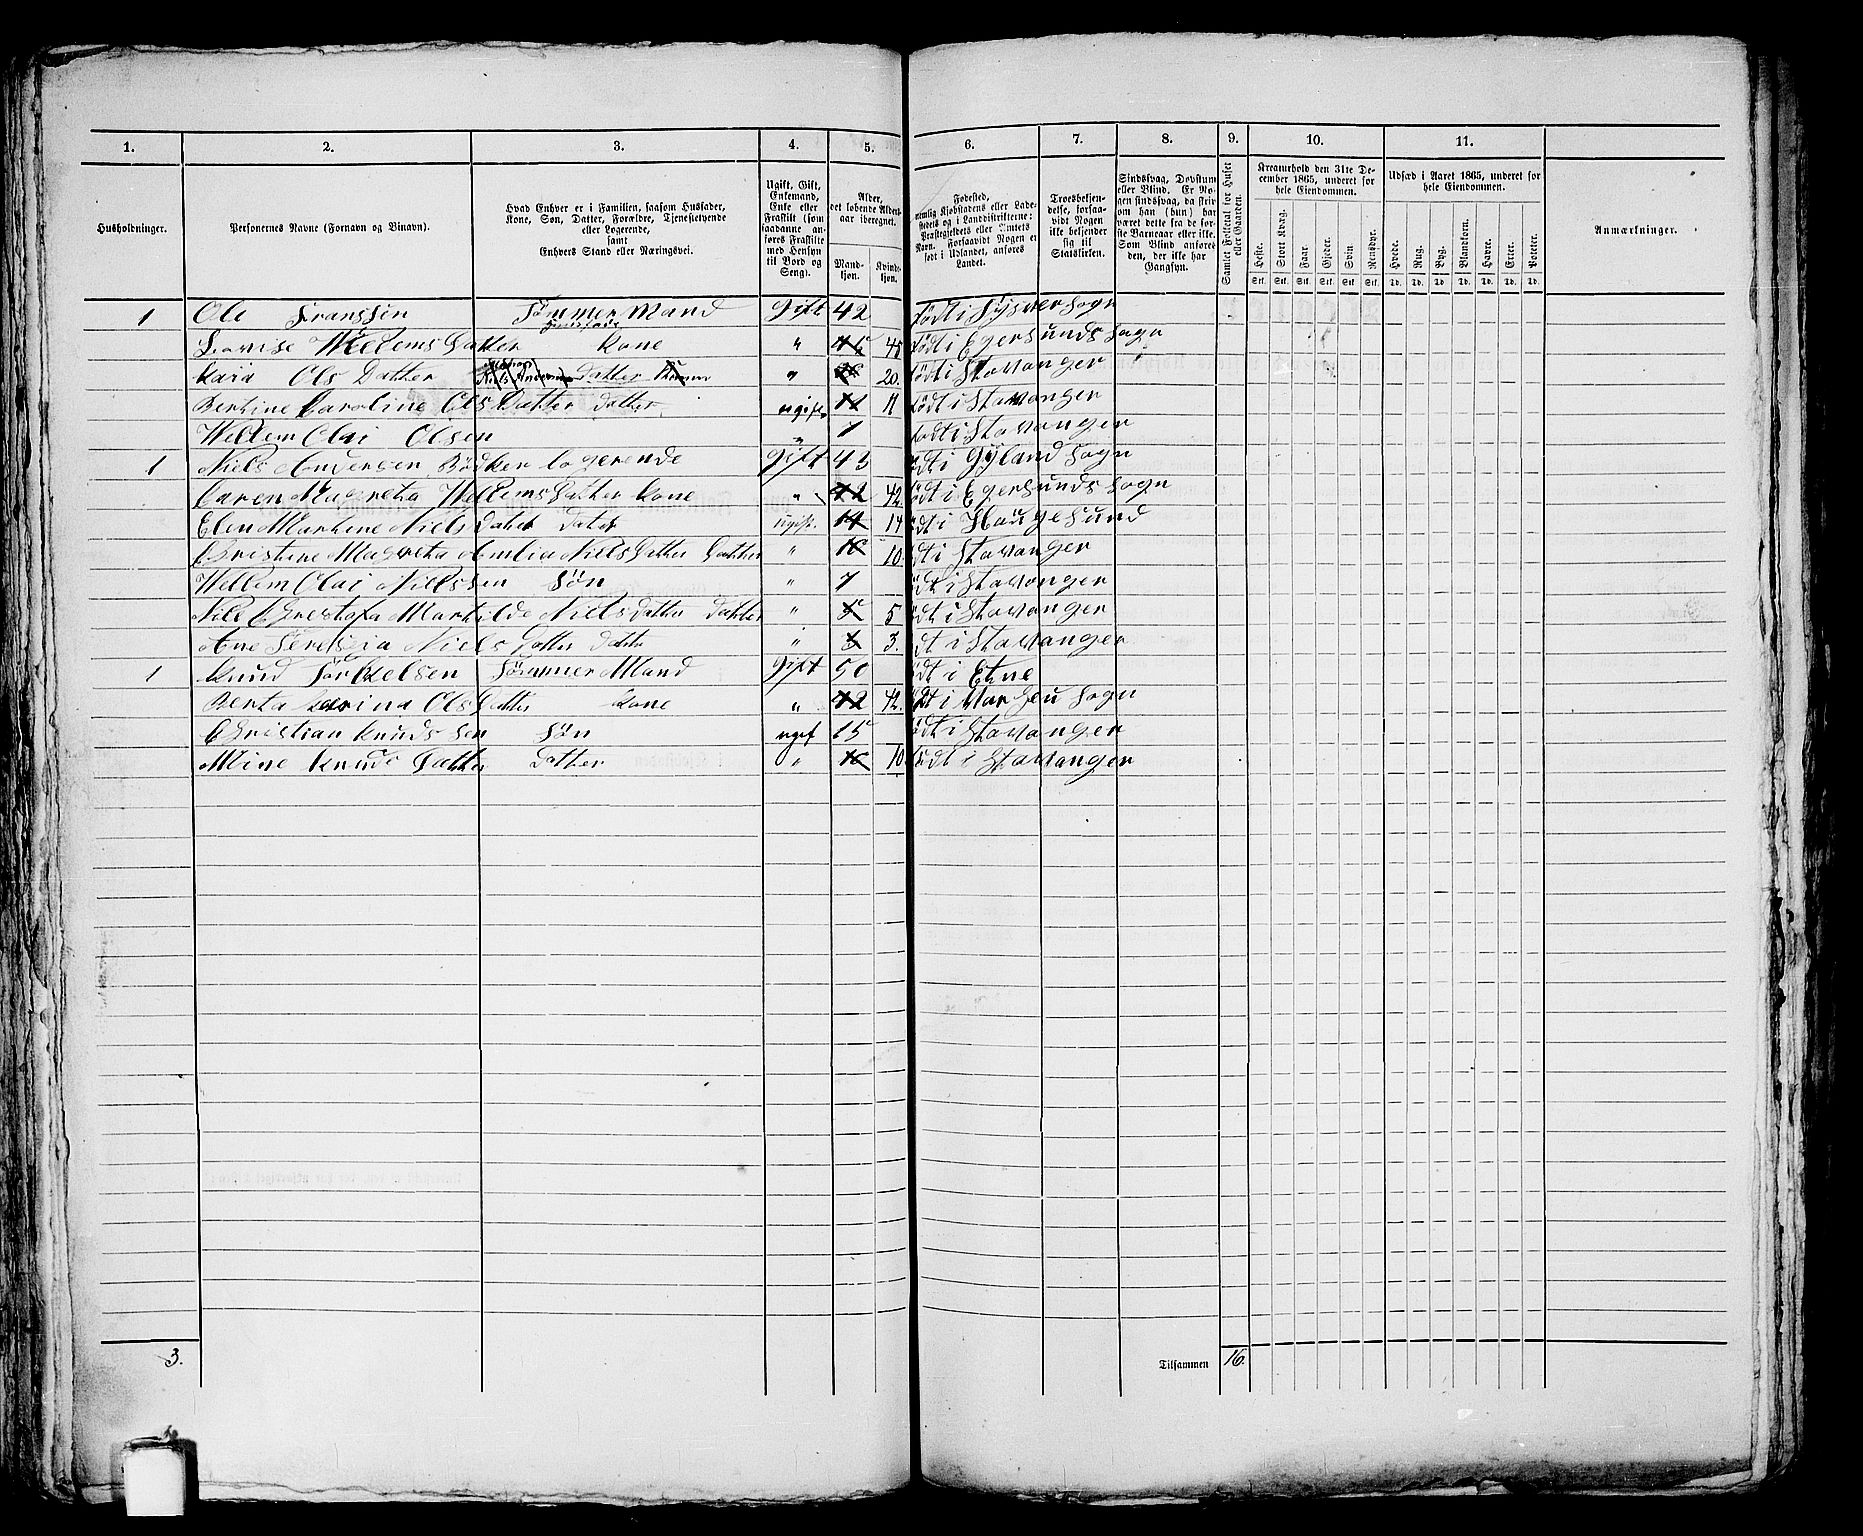 1. 2. 3. 4. 5. 6. 7. 8. 9. 10. 11.
Husholdninger.
Personernes Navne (Fornavn og Binavn).
Hvad Enhver er i Familien, saasom Husfader,
Kone, Søn, Datter, Forældre, Tjenestetyende
eller Logerende,
samt
Enhvers Stand eller Næringsvei.
Ugift, Gift,
Enkemand,
Enke eller
Fraskilt (som
saadanne an-
føres Fraskilte
med Hensyn
til Bord og
Seng).
Alder,
det løbende Alders-
aar iberegnet.
Mand-
kjøn.
Kvind-
kjøn.
Fødested,
nemlig Kjøbstadens eller Lade-
stedets og i Landdistrikterne:
Præstegjeldets eller Amtets
Navn. Forsaavidt Nogen er
født i Udlandet, anføres
Landet.
Troesbekjen-
delse, forsaa-
vidt Nogen
ikke bekjender
sig til
Statskirken.
Sindssvag, Døvstum
eller Blind. Er No-
gen sindssvag, da skriv
om han (hun) har
været dette fra de før-
ste Barneaar eller ikke.
Som Blind anføres
den, der ikke har
Gangsyn.
Samlet Folketal for Huset
eller Gaarden.
Kreaturhold den 31te De-
cember 1865, underet for
hele Eiendommen.
Heste. Stort Kvæg. Faar. Gjeder. Svin. Rensdyr.
Stk. Stk. Stk. Stk. Stk. Stk.
Udsæd i Aaret 1865, underet for
hele Eiendommen.
Hvede. Rug. Byg. Blandkorn. Havre. Erter. Poteter.
Td. Td. Td. Td. Td. Td. Td.
Anmærkninger.
1 Ole Franssen Tømmer Mand Gift 42 født i Sogn
Lovise Wellems Datter kone " 45 født i Egersunds Sogn
Ols Datter Datter " 20. født i Stavanger
Bertine Caroline Ols Datter datter ugift 11 11 født i Stavanger
Wellem Olai Olsen " 7 født i Stavanger
1 Niels Andersen Bødker logerende Gift 43 født i Gyland Sogn
Caren Magreta Wellems Datter kone " 42 42. født i Egersunds Sogn
Elen Martine Niels Datter Datter ugift. 14 14 født i Haugesund
Christine Magreta Amlia Niels Datter Datter " 10 10. født i Stavanger
Wellem Olai Nielssen Søn " 7 født i Stavanger
Martilde Niels Datter Datter " 5 5 født i Stavanger
Ane Niels Datter Datter " 3 3. født i Stavanger
1 Knud Torkelsen Tømmer Mand Gift 50 født i Etne
Berta Ols Datter kone " 42 42. født i Sogn
Christian Knudssen Søn ugif 15 født i Stavanger
Mine Knuds Datter Datter " 10 10 født i Stavanger
3.
Tilsammen 16.